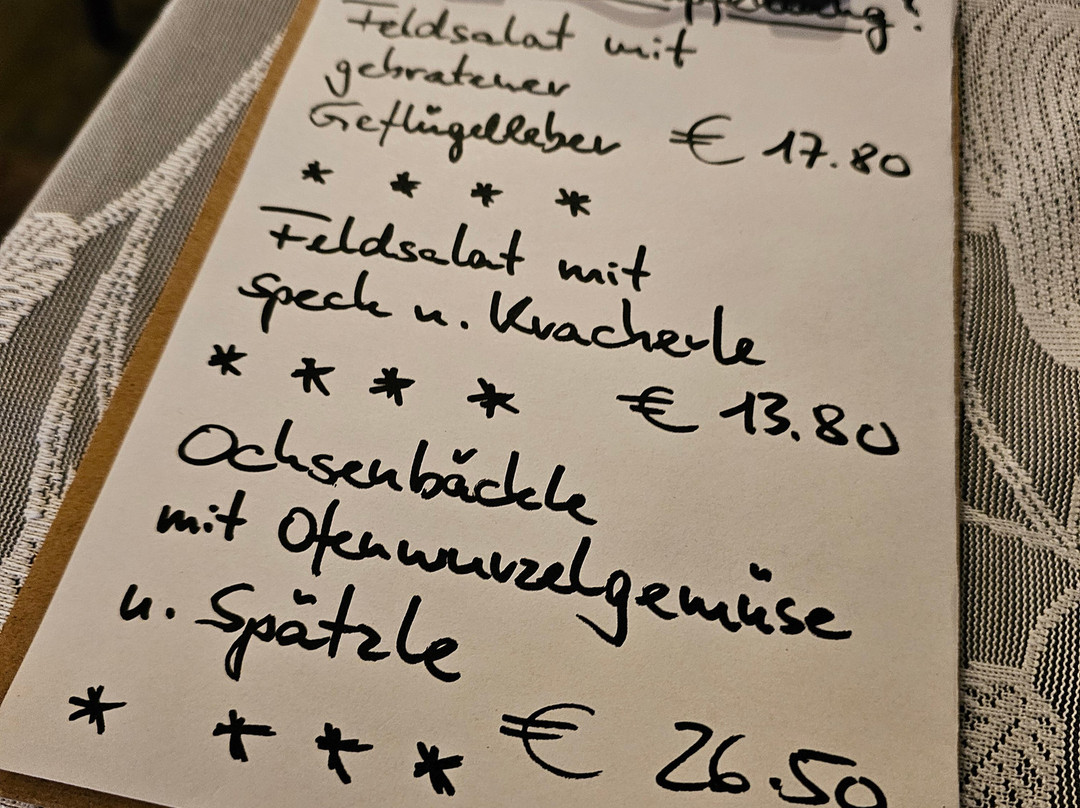 Feldsalat mit
gebratener
Geflügelleber € 17.80
* * * *
Feldsalat mit
Speck u. Kracherle
* * * * € 13.80
Ochsenbäckle
mit Ofenwurzelgemüse
u. Spätzle
* * * * € 26.50